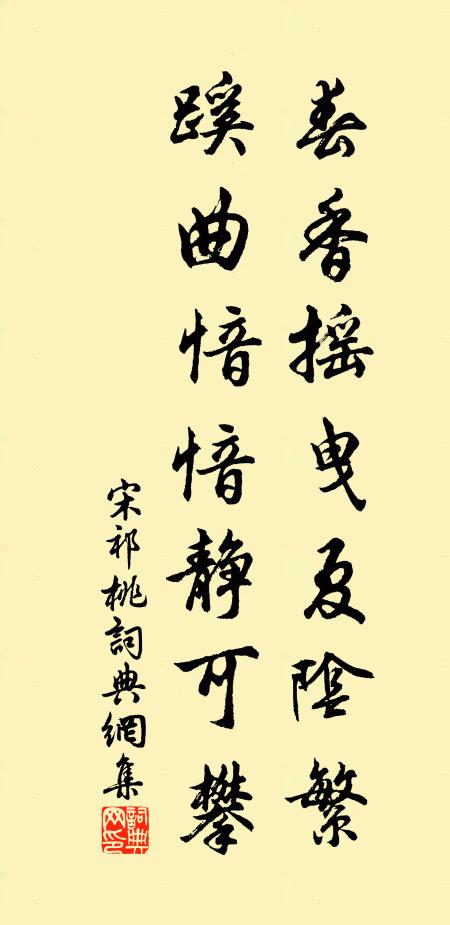 春香摇曳夏陰繁
蹊曲愔愔静可攀
宋祁桃詞典網集
詞典网印